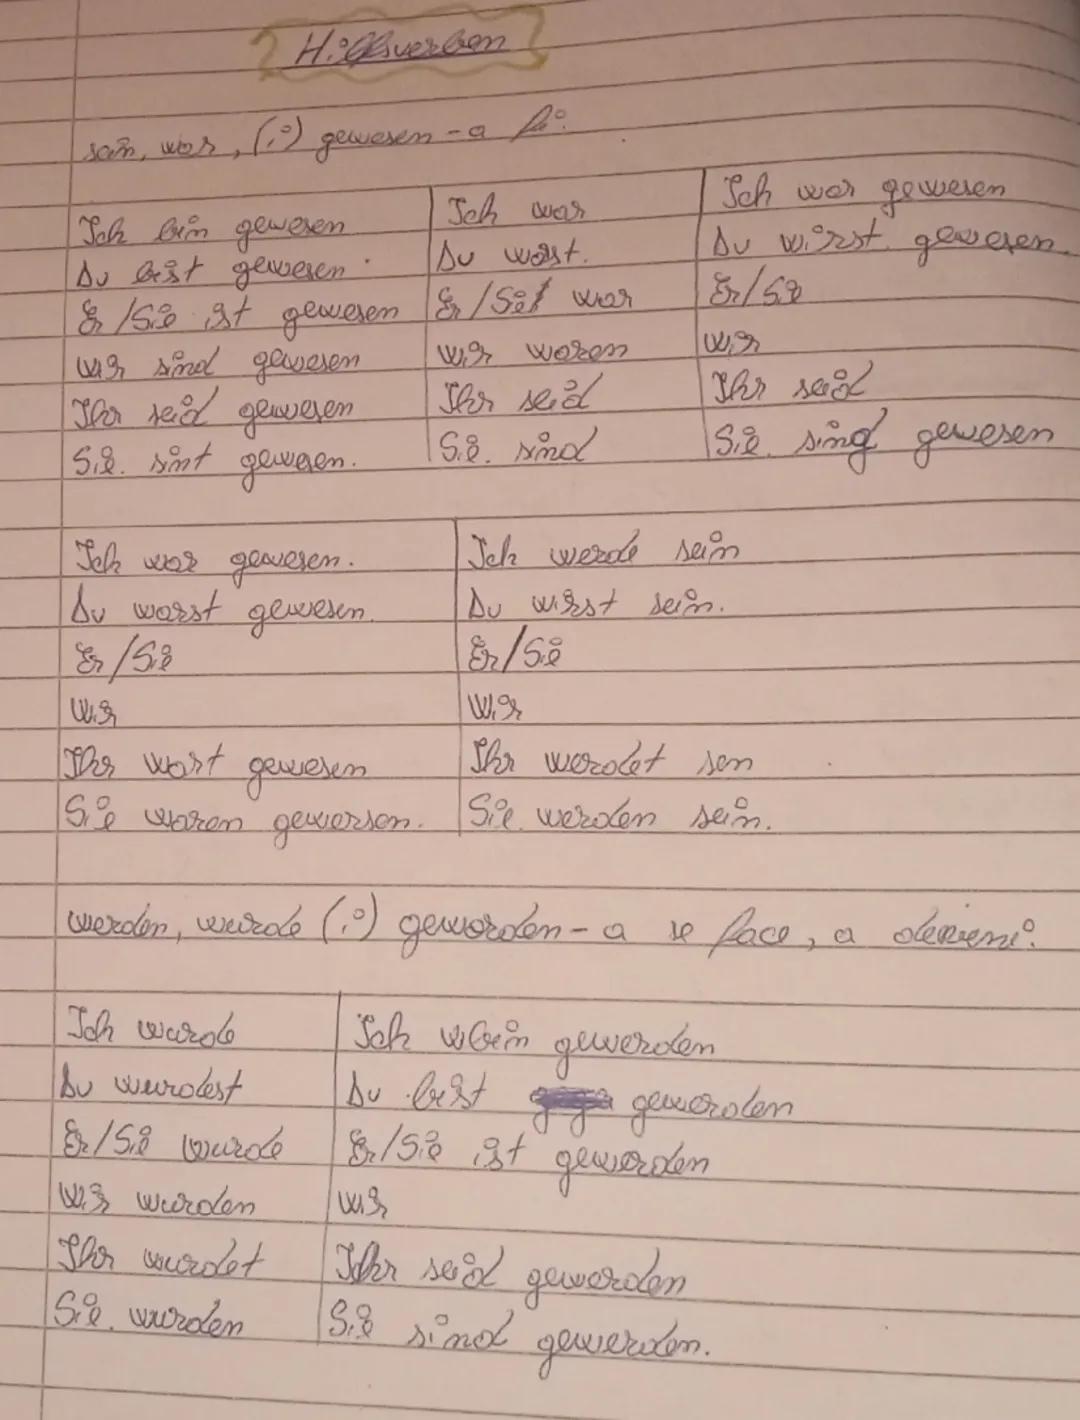 Hilfsverben
sein, war, (i) gewesen - a fi
Ich bin gewesen | Ich war | Ich war gewesen
Du bist gewesen. | Du warst. | Du wirst gewesen.
Er/Sie ist gewesen | Er/Sie war | Er/Sie
Wir sind gewesen | Wir waren | Wir
Ihr seid gewesen | Ihr seid | Ihr seid
Sie sint gewesen. | Sie sind | Sie sing gewesen
Ich war gewesen. | Ich werde sein
Du warst gewesen. | Du wirst sein.
Er/Sie | Er/Sie
Wir | Wir
Ihr wart gewesen | Ihr werdet sen
Sie waren gewersen. | Sie werden sein.
werden, wurde (i) geworden - a se face, a deveni
Ich wurde | Ich bin gewerden
Du wurdest | Du bist gewerden
Er/Sie wurde | Er/Sie ist gewerden
Wir wurden | Wir
Ihr wurdet | Ihr seid gewerden
Sie wurden | Sie sind gewerden.